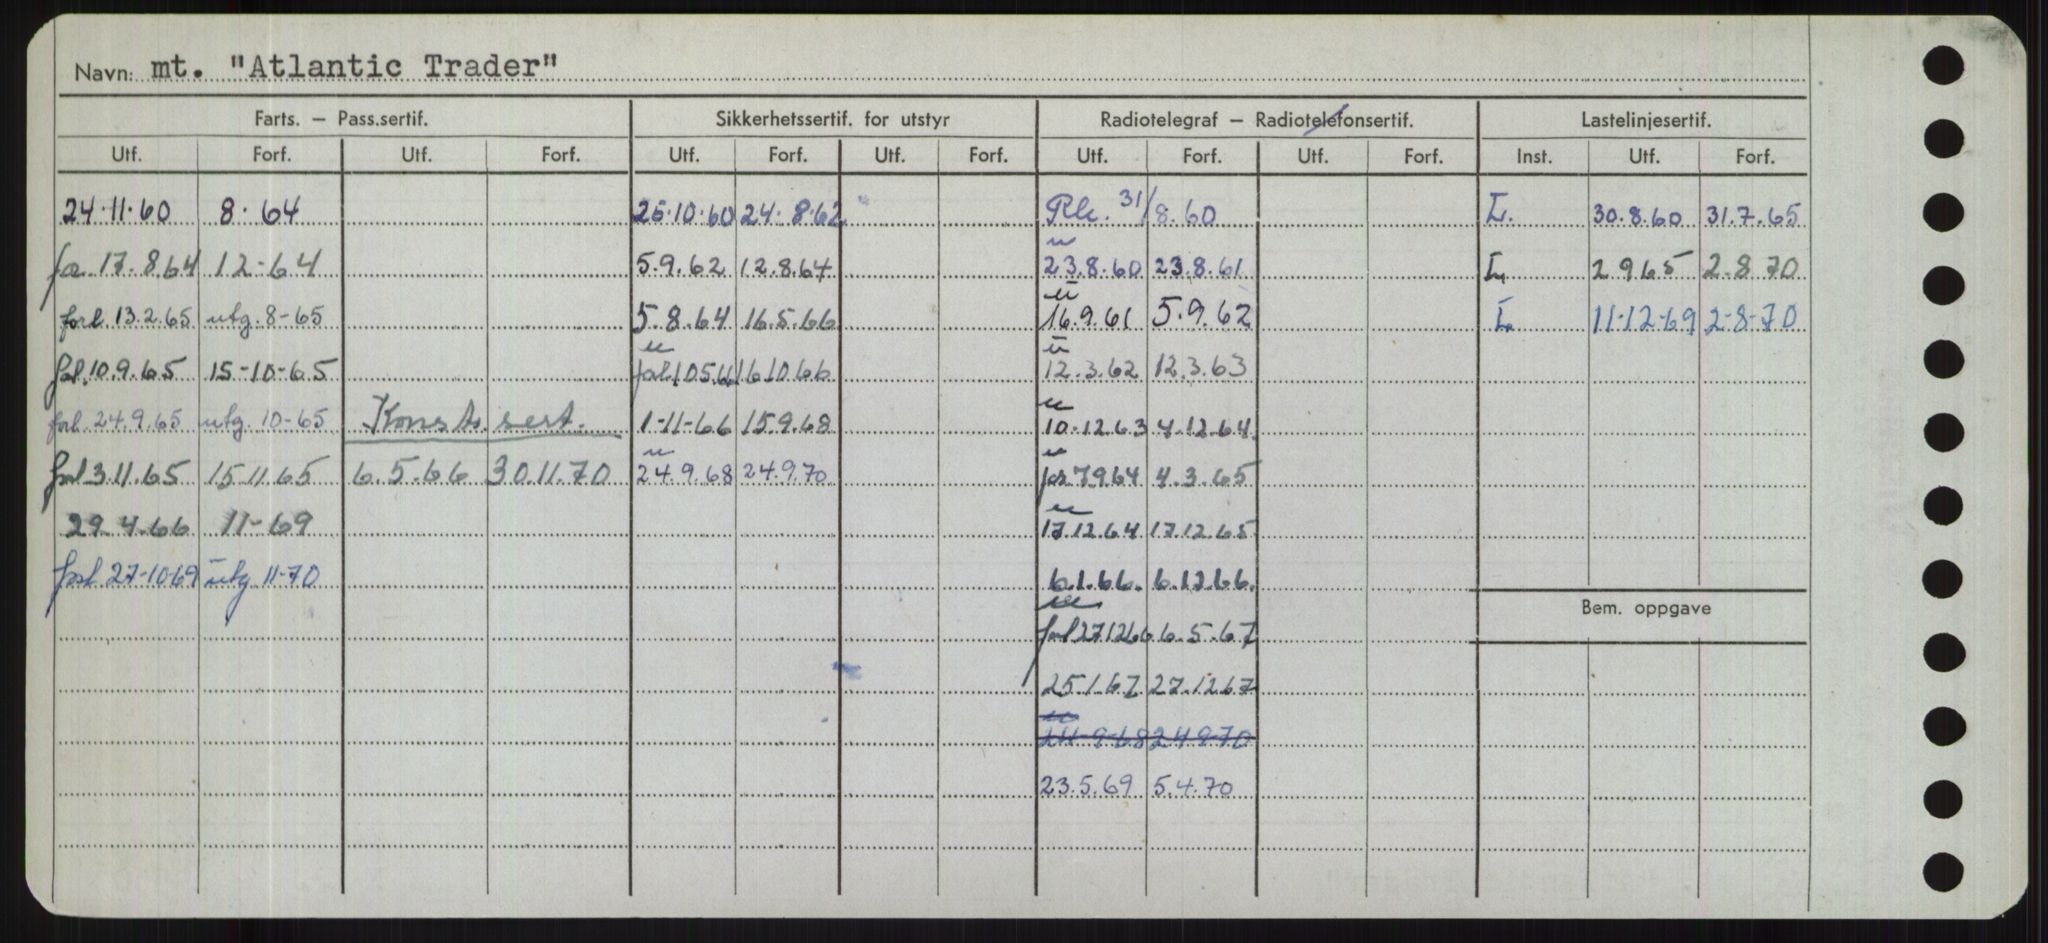 Navn: mt. "Atlantic Trader"
Farts. – Pass.sertif. Sikkerhetssertif. for utstyr Radiotelegraf – Radiotelefonsertif. Lastelinjesertif.
Utf. Forf. Utf. Forf. Utf. Forf. Utf. Forf. Utf. Forf. Utf. Forf. Inst. Utf. Forf.
24.11.60 8.64 26.10.60 24.8.62 31/8.60 L. 30.8.60 31.7.65
17.8.64 12-64 5.9.62 12.8.64 23.8.60 23.8.61 L 2.9.65 2.8.70
forl. 13.2.65 utg. 8-65 5.8.64 16.5.66 16.9.61 5.9.62 L 11-12-69 2-8-70
forl. 10.9.65 15-10-65 forl. 10.5.66 16.10.66 12.3.62 12.3.63
forl. 24.9.65 utg. 10-65 Konstr. sert. 1-11-66 15.9.68 10.12.63 4.12.64
forl 3.11.65 15.11.65 6.5.66 30.11.70 24.9.68 24.9.70 7.9.64 4.3.65
29.4.66 11-69 17.12.64 17.12.65
forl. 27-10-69 utg 11-70 6.1.66. 6.12.66.
Bem. oppgave
forl 27.12.66 6.5.67
25.1.67 27.12.67
24-9-68 24-9-70
23.5.69 5.4.70